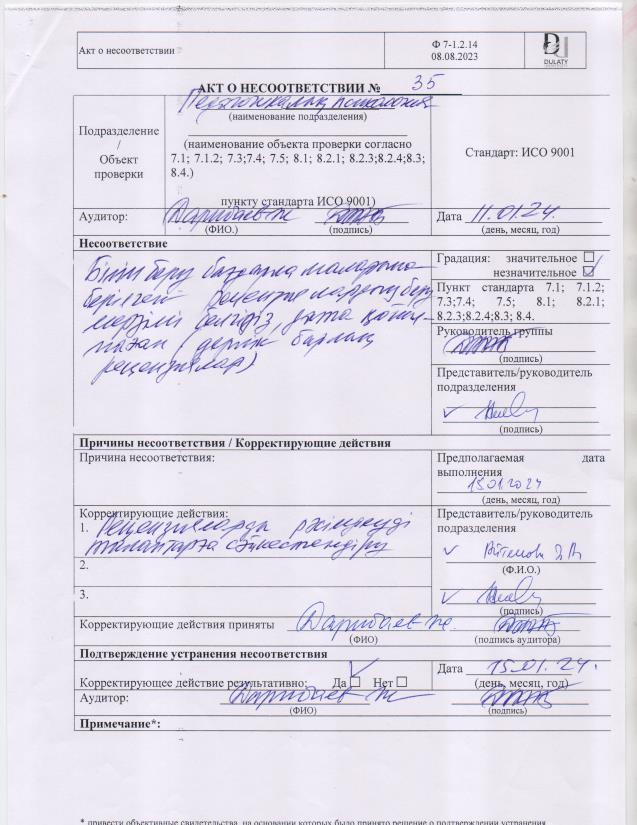 Акт о несоответствии
Ф 7-1.2.14
08.08.2023
DULATY
АКТ О НЕСООТВЕТСТВИИ № 35
Педагогикалық психология
(наименование подразделения)
Подразделение
/
Объект
проверки
(наименование объекта проверки согласно
7.1; 7.1.2; 7.3;7.4; 7.5; 8.1; 8.2.1; 8.2.3;8.2.4;8.3;
8.4.)
пункту стандарта ИСО 9001)
Стандарт: ИСО 9001
Аудитор:
(ФИО.)
(подпись)
Дата 11.01.24.
(день, месяц, год)
Несоответствие
Білім беру бағдарламаларына
берілген рецензиялардың беру
мерзімі белгісіз, дата қойыл-
маған (
барлық
рецензиялар)
Градация: значительное
незначительное
Пункт стандарта 7.1; 7.1.2;
7.3;7.4; 7.5; 8.1; 8.2.1;
8.2.3;8.2.4;8.3; 8.4.
Руководитель группы
(подпись)
Представитель/руководитель
подразделения
(подпись)
Причины несоответствия / Корректирующие действия
Причина несоответствия:
Предполагаемая дата
выполнения
15.01.2024
(день, месяц, год)
Корректирующие действия:
1. Рецензияларды рәсімдеуді
талаптарға сәйкестендіру
2.
3.
Представитель/руководитель
подразделения
(Ф.И.О.)
(подпись)
Корректирующие действия приняты
(ФИО)
(подпись аудитора)
Подтверждение устранения несоответствия
Корректирующее действие результативно: Да Нет
Дата 15.01.24.
(день, месяц, год)
Аудитор:
(ФИО)
(подпись)
Примечание*:
* привести объективные свидетельства, на основании которых было принято решение о подтверждении устранения